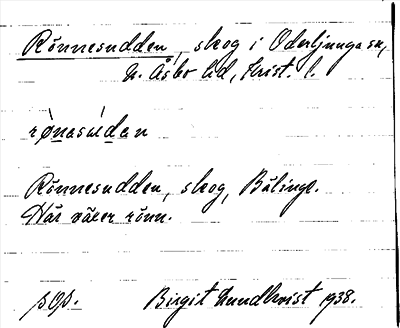 Rönnesudden, skog i Oderljunga sn,
N. Åsbo hd, Krist. l.
rønesúdan
Rönnesudden, skog, Bälinge.
Här växer rönn.
pop.
Birgit Lundkvist 1938.